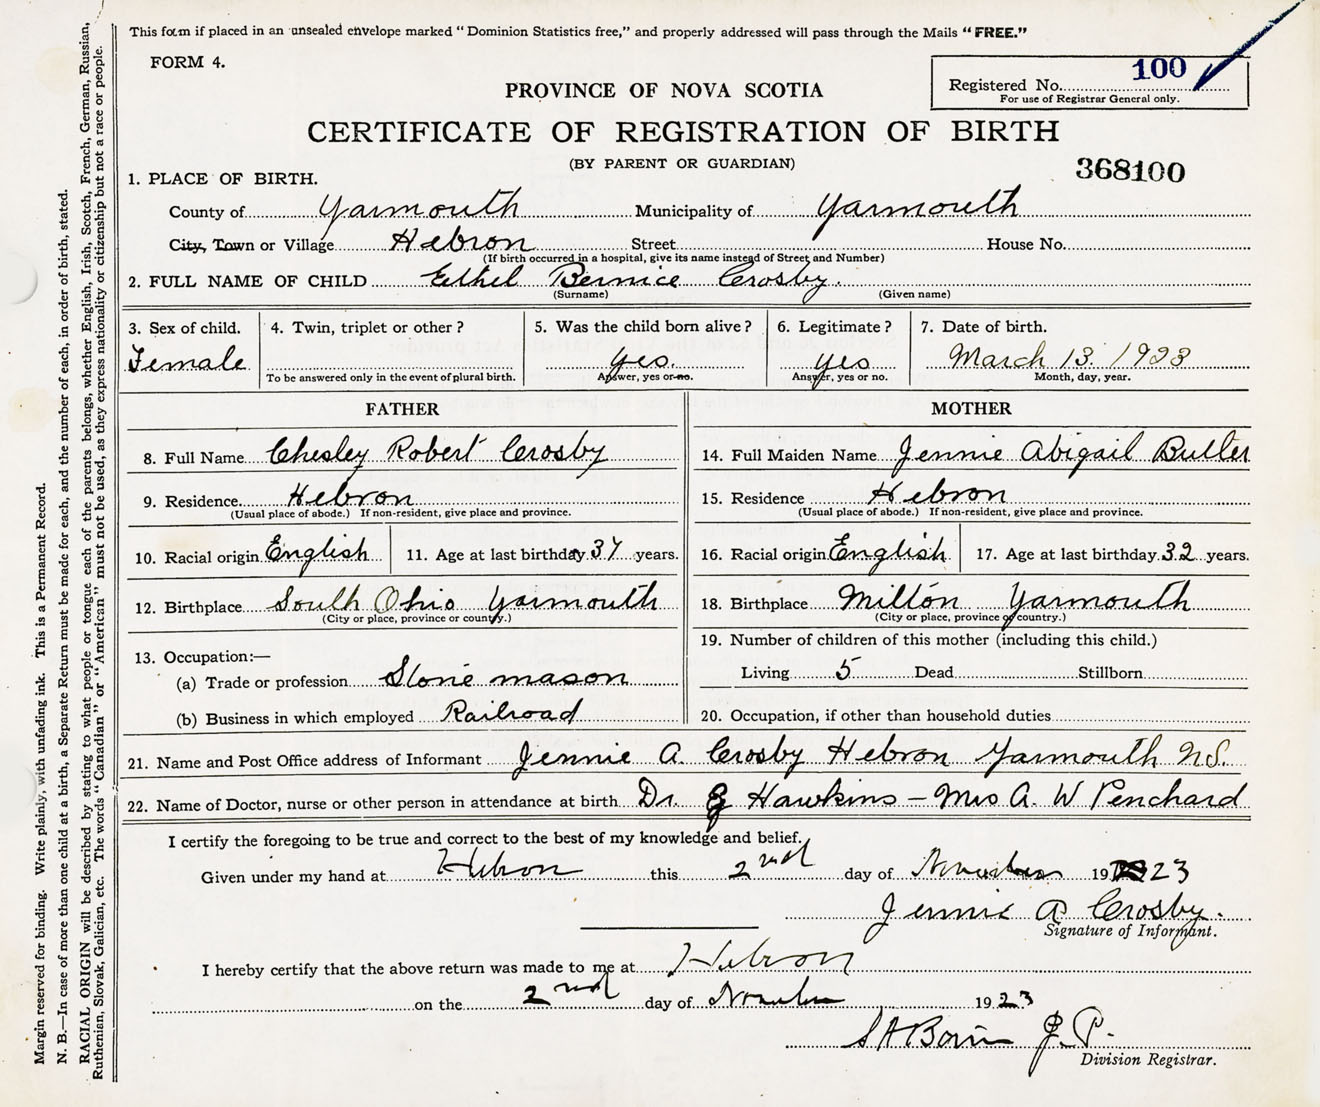 This form if placed in an unsealed envelope marked "Dominion Statistics free," and properly addressed will pass through the Mails "FREE."
FORM 4.
Registered No. 100
For use of Registrar General only.
PROVINCE OF NOVA SCOTIA
CERTIFICATE OF REGISTRATION OF BIRTH
(BY PARENT OR GUARDIAN)
368100
1. PLACE OF BIRTH.
County of Yarmouth Municipality of Yarmouth
City, Town or Village Hebron Street House No.
(If birth occurred in a hospital, give its name instead of Street and Number)
2. FULL NAME OF CHILD Ethel Bernice Crosby.
(Surname) (Given name)
3. Sex of child. 4. Twin, triplet or other? 5. Was the child born alive? 6. Legitimate? 7. Date of birth.
Female yes. yes March 13. 1923
To be answered only in the event of plural birth. Answer, yes or no. Answer, yes or no. Month, day, year.
FATHER
8. Full Name Chesley Robert Crosby
9. Residence Hebron
(Usual place of abode.) If non-resident, give place and province.
10. Racial origin English 11. Age at last birthday 37 years.
12. Birthplace South Ohio Yarmouth
(City or place, province or country.)
13. Occupation:—
(a) Trade or profession Stone mason
(b) Business in which employed Railroad
MOTHER
14. Full Maiden Name Jennie Abigail Butler
15. Residence Hebron
(Usual place of abode.) If non-resident, give place and province.
16. Racial origin English 17. Age at last birthday 32 years.
18. Birthplace Milton Yarmouth
(City or place, province or country.)
19. Number of children of this mother (including this child.)
Living 5 Dead Stillborn
20. Occupation, if other than household duties
21. Name and Post Office address of Informant Jennie A Crosby Hebron Yarmouth N.S.
22. Name of Doctor, nurse or other person in attendance at birth Dr. Hawkins – Mrs A. W Penchard
I certify the foregoing to be true and correct to the best of my knowledge and belief.
Given under my hand at Hebron this 2nd day of November 1923
Jennie A Crosby.
Signature of Informant.
I hereby certify that the above return was made to me at Hebron
on the 2nd day of November 1923
J. P.
Division Registrar.
Margin reserved for binding. Write plainly, with unfading ink. This is a Permanent Record.
N. B.—In case of more than one child at a birth, a Separate Return must be made for each, and the number of each, in order of birth, stated.
RACIAL ORIGIN will be described by stating to what people or tongue each of the parents belongs, whether English, Irish, Scotch, French, German, Russian,
Ruthenian, Slovak, Galician, etc. The words "Canadian" or "American" must not be used, as they express nationality or citizenship but not a race or people.